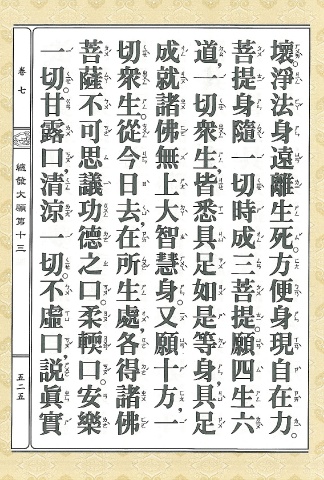 壞。淨法身遠離生死。方便身現自在力。
菩提身隨一切時成三菩提。願四生六
道，一切眾生，皆悉具足如是等身，具足
成就諸佛無上大智慧身。又願十方，一
切眾生，從今日去，在所生處，各得諸佛
菩薩不可思議功德之口，柔輭口，安樂
一切。甘露口，清涼一切。不虛口，說眞實
卷七
總發大願第十三
五二五